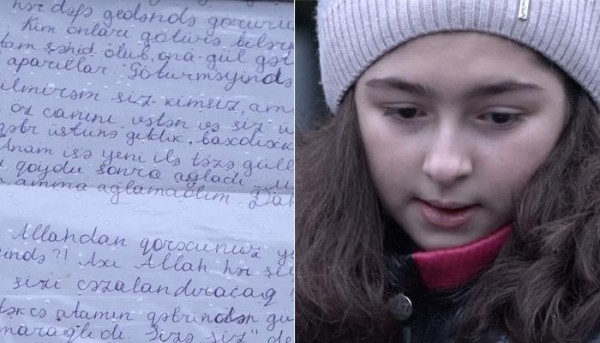 hər dəfə gedəndə görürü
Kim onları götürə bilər
şəhid olub, ona gül gət
aparıllar. Götürməyində
ilmirəm siz kimsiz, am
öz canını vətən və siz u
qəbr üstünə getdik, baxdıxk
Anam isə yeni ilə təzə gülle
qoydu sonra ağladı
amma ağlamadım. Dah
Allahdan qorxunuz y
ində ?! Axı Allah hər şe
sizi cəzalandıracaq !
təkcə atamın qəbrindən gü
maraqlıdı. Sizə siz" de